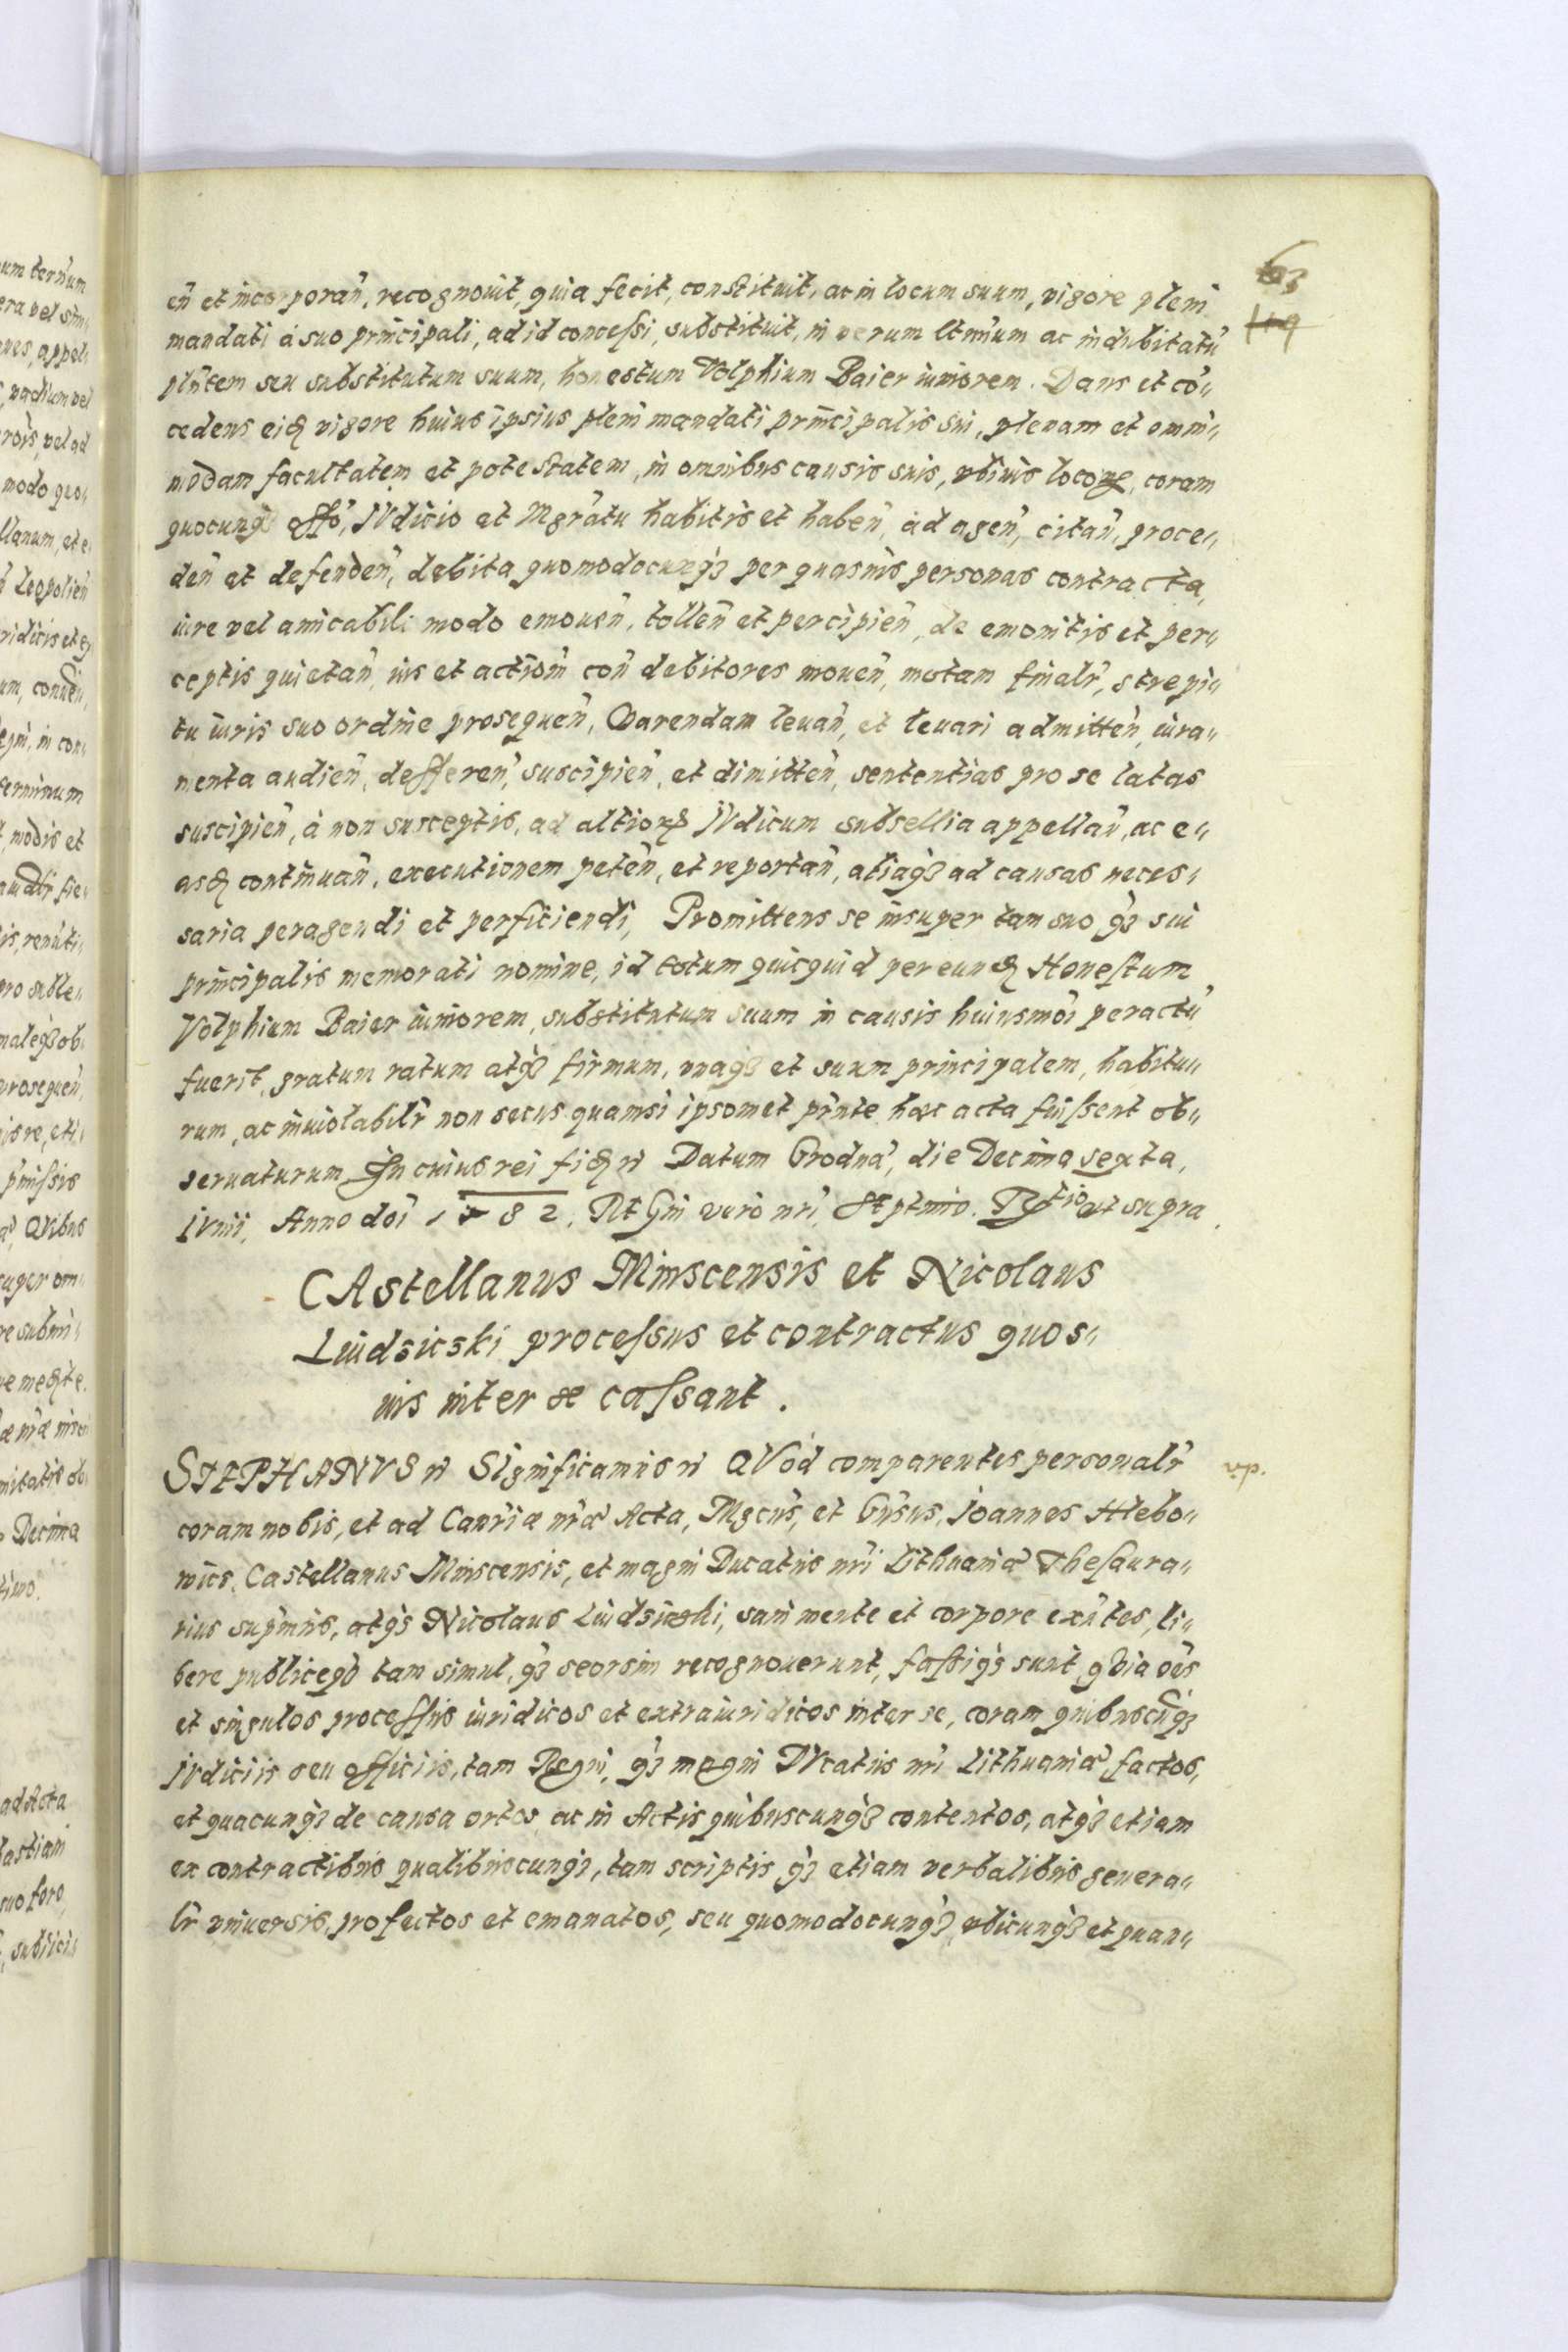 63
119
eń et incorporań, recognouit, quia fecit, constituit, ac in locum suum, vigore pleni
mandati á suo principali, ad id conceſsi, substituit, in verum ltimũm ac indubitatũ
plñtem seu substitutum suum, honestum Volphium Baier iuniorem. Dans et cõ„
cedens eidẽ vigore huius ipsius pleni mandati principalis sui, plenam et omni„
modam facultatem et potestatem, in omnibus causis suis, vbiuis locorũ, coram
quocunq́ȝ offõ, IVdicio et Mgrãtu habitis et habeń, ad ageń, citań, proce„
deń et defendeń, debita quomodocunq́ȝ per quasuis personas contracta,
iure vel amicabili modo emoueń, tolleń et percipień, de emonitis et per„
ceptis quietań, ius et actioñ coñ debitores moueń, motam finalr̃, strepi„
tu iuris suo ordine prosequeń, Warendam leuań, et leuari admitteń, iura„
menta audień, defferеń, suscipień, et dimitteń, sententias pro se latas
suscipień, á non susceptis, ad altiorũ IVdicum subsellia appellań, ac e„
asdẽ continuań, executionem peteń, et reportań, aliaq́ȝ ad causas neces„
saria peragendi et perficiendi, Promittens se insuper tam suo q́ȝ sui
principalis memorati nomine, id totum quicquid per eundẽ Honeſtum
Volphium Baier iuniorem, substitutum suum in causis huiusmõi peractũ
fuerit, gratum ratum atq́ȝ firmum, vnaq́ȝ et suum principalem, habitu„
rum, ac inuiolabilr̃ non secus quamsi ipsomet pr̃nte hæc acta fuiſsent ob„
seruaturum, In cuius rei fidẽ r̃ Datum Grodnæ, die Decima sexta,
IVnii, Anno doĩ 1582. Regni vero nr̃i Septimo. ut supra.
CAstellanus Minscensis et Nicolaus
Luidsicski proceſsus et contractus quos„
uis inter se caſsant.
STEPHANVS r̃ Significamus r̃ QVod comparentes personalr̃
coram nobis, et ad Canr̃iæ nr̃æ Acta, Mgcũs, et Gñsus, Ioannes Hlebo„
wics, Castellanus Minscensis, et magni Ducatus nr̃i Lithuaniæ Theſaura„
rius supr̃mus, atq́ȝ Nicolaus Luidsicski, sani mente et corpore exñtes, li„
bere publiceq́ȝ tam simul, q́ȝ seorsim recognouerunt, faſsiq́ȝ sunt, qVia oẽs
et singulos proceſsus iuridicos et extraiuridicos inter se, coram quibuscũq́ȝ
IVdiciis seu officiis, tam Regni, q́ȝ magni DVcatus nr̃i Lithuaniæ, factos,
et quacunq́ȝ de causa ortos ac in Actis quibuscunq́ȝ contentos, atq́ȝ etiam
ex contractibus qualibuscunq́ȝ, tam scriptis q́ȝ etiam verbalibus genera„
lr̃ vniuersis, profectos et emanatos, seu quomodocunq́ȝ, vbicunq́ȝ et quan„